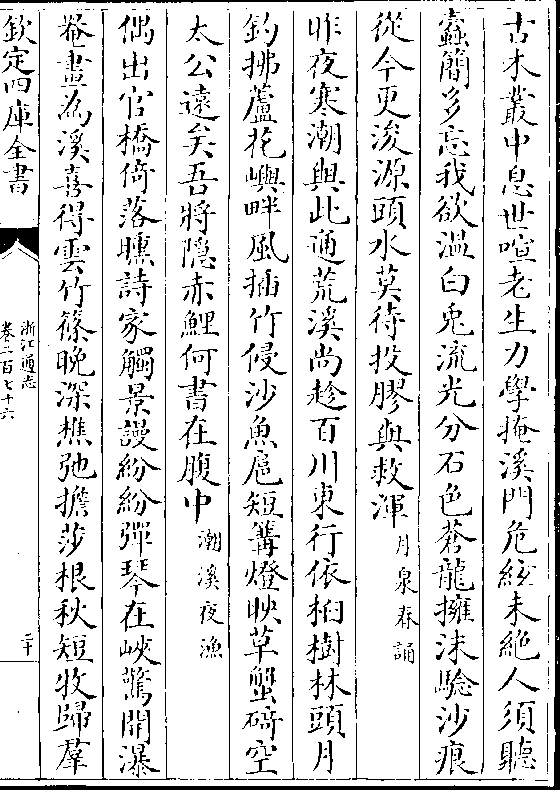 古木叢中息世喧老生力學掩溪門危絃未絶人須聽
蠹簡多忘我欲溫白兎流光分石色蒼龍擁沫驗沙痕
從今更浚源頭水莫待投膠與救渾月泉春誦
昨夜寒潮與此通荒溪尚趁百川東行依桕樹林頭月
釣拂蘆花嶼畔風插竹侵沙魚扈短篝燈映草蟹碕空
太公遠矣吾將隠赤鯉何書在腹中潮溪夜漁
偶出官橋倚落曛詩家觸景謾紛紛彈琴在峽驚開瀑
卷畫為溪喜得雲竹篠晚深樵弛擔莎根秋短牧歸羣
欽定四庫全書
浙江通志
卷二百七十六
二十